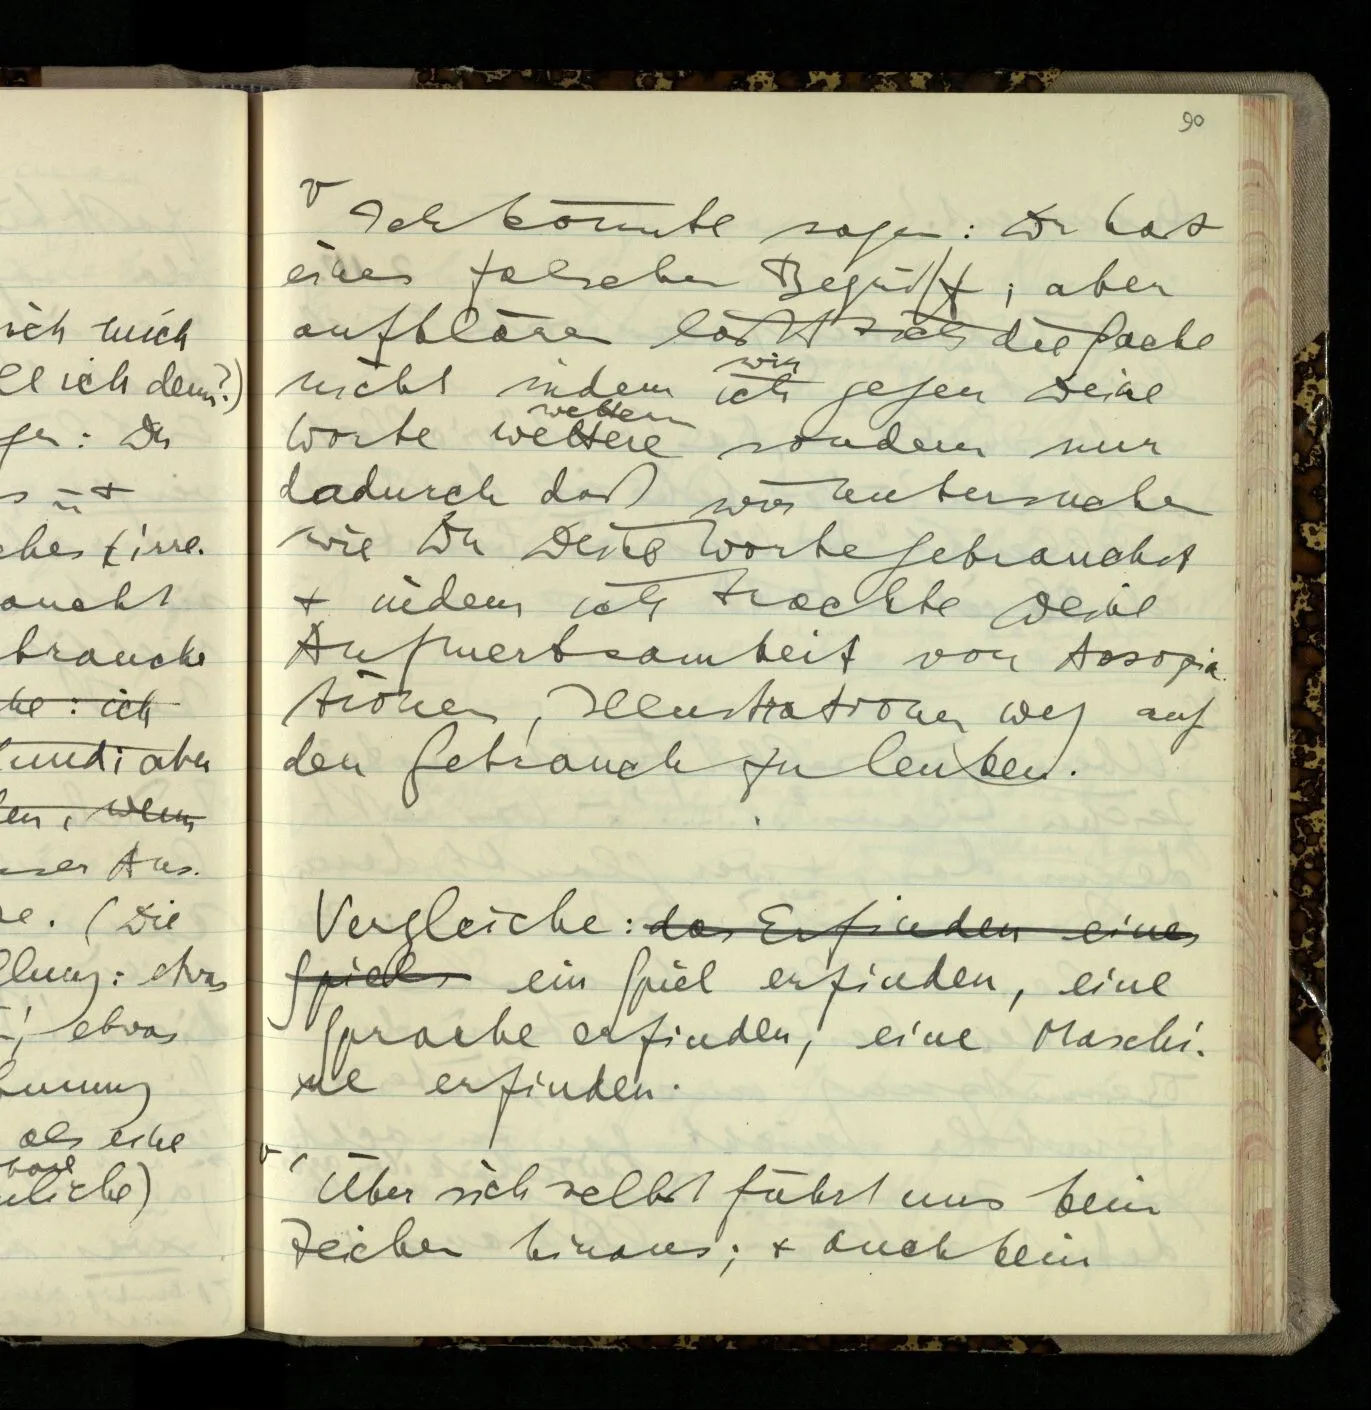 ich mich
ich denn?)
Du
irre.
ich
aber
wenn
Aus-
(Die
etwas
etwas
als eine
90
v
Ich könnte sagen: Du hast
einen falschen Begriff; aber
aufklären läßt sich die Sache
wir
nicht indem ich gegen Deine
wettern
Worte wettere sondern nur
dadurch daß wir untersuchen
wie Du Deine Worte gebrauchst
+ indem ich trachte Deine
Aufmerksamkeit von Assozia-
tionen, Illustrationen weg auf
den Gebrauch zu lenken.
Vergleiche: das Erfinden eines
Spiels ein Spiel erfinden, eine
Sprache erfinden, eine Maschi-
ne erfinden.
v
Über sich selbst führt uns kein
Zeichen hinaus; + auch kein